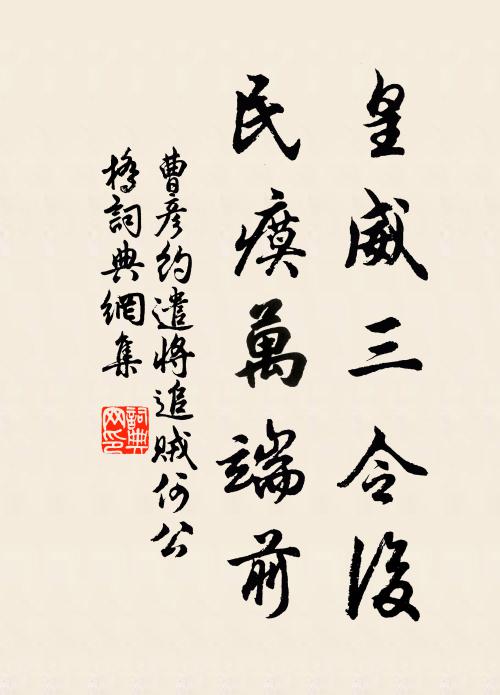 皇威三令後
民瘼萬端前
曹彥約遣將追賊何公
橋詞典網集
詞典
网印